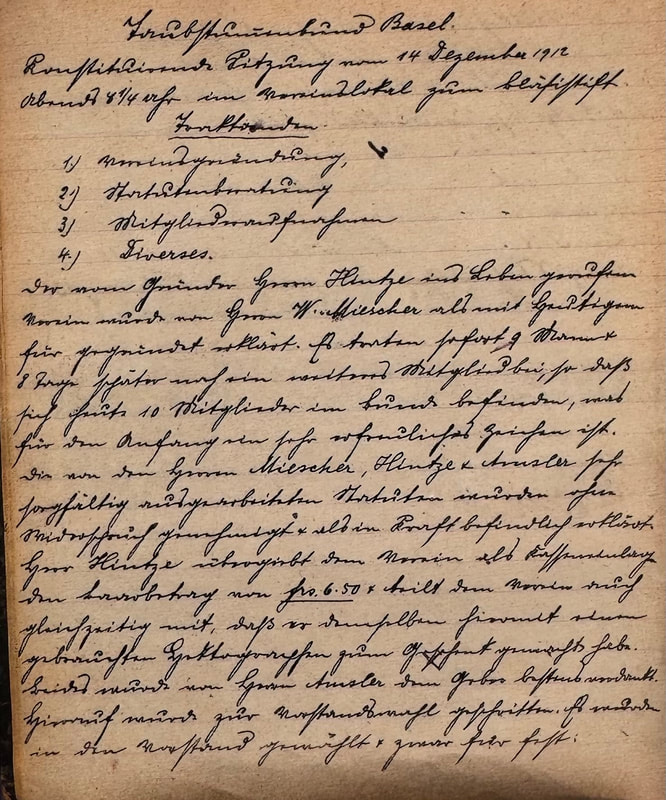 Taubstummenbund Basel.
Konstituirende Sitzung vom 14 Dezember 1912
Abends 8 1/4 Uhr im Vereinslokal zum Bläsistift.
Traktanden.
1.) Vereinsgründung,
2.) Statutenberatung
3.) Mitgliederaufnahmen
4.) Diverses.
Der vom Gründer Herrn Hintze ins Leben gerufene
Verein wurde von Herrn W. Miescher als mit Heutigem
für gegründet erklärt. Es traten sofort 9 Mann &
8 Tage später noch ein weiteres Mitglied bei, so daß
sich heute 10 Mitglieder im Bunde befinden, was
für den Anfang ein sehr erfreuliches Zeichen ist.
Die von den Herren Miescher, Hintze & Amsler sehr
sorgfältig ausgearbeiteten Statuten wurden ohne
Widerspruch genehmigt & als in Kraft befindlich erklärt.
Herr Hintze übergiebt dem Verein als Kasseneinlage
den Baarbetrag von frs. 6.50 & teilt dem Verein auch
gleichzeitig mit, daß er demselben hiermit einen
gebrauchten Hektographen zum Geschenk gemacht habe.
Beides wurde von Herrn Amsler dem Geber bestens verdankt.
Hierauf wurde zur Vorstandswahl geschritten. Es wurden
in den Vorstand gewählt & zwar für fest: